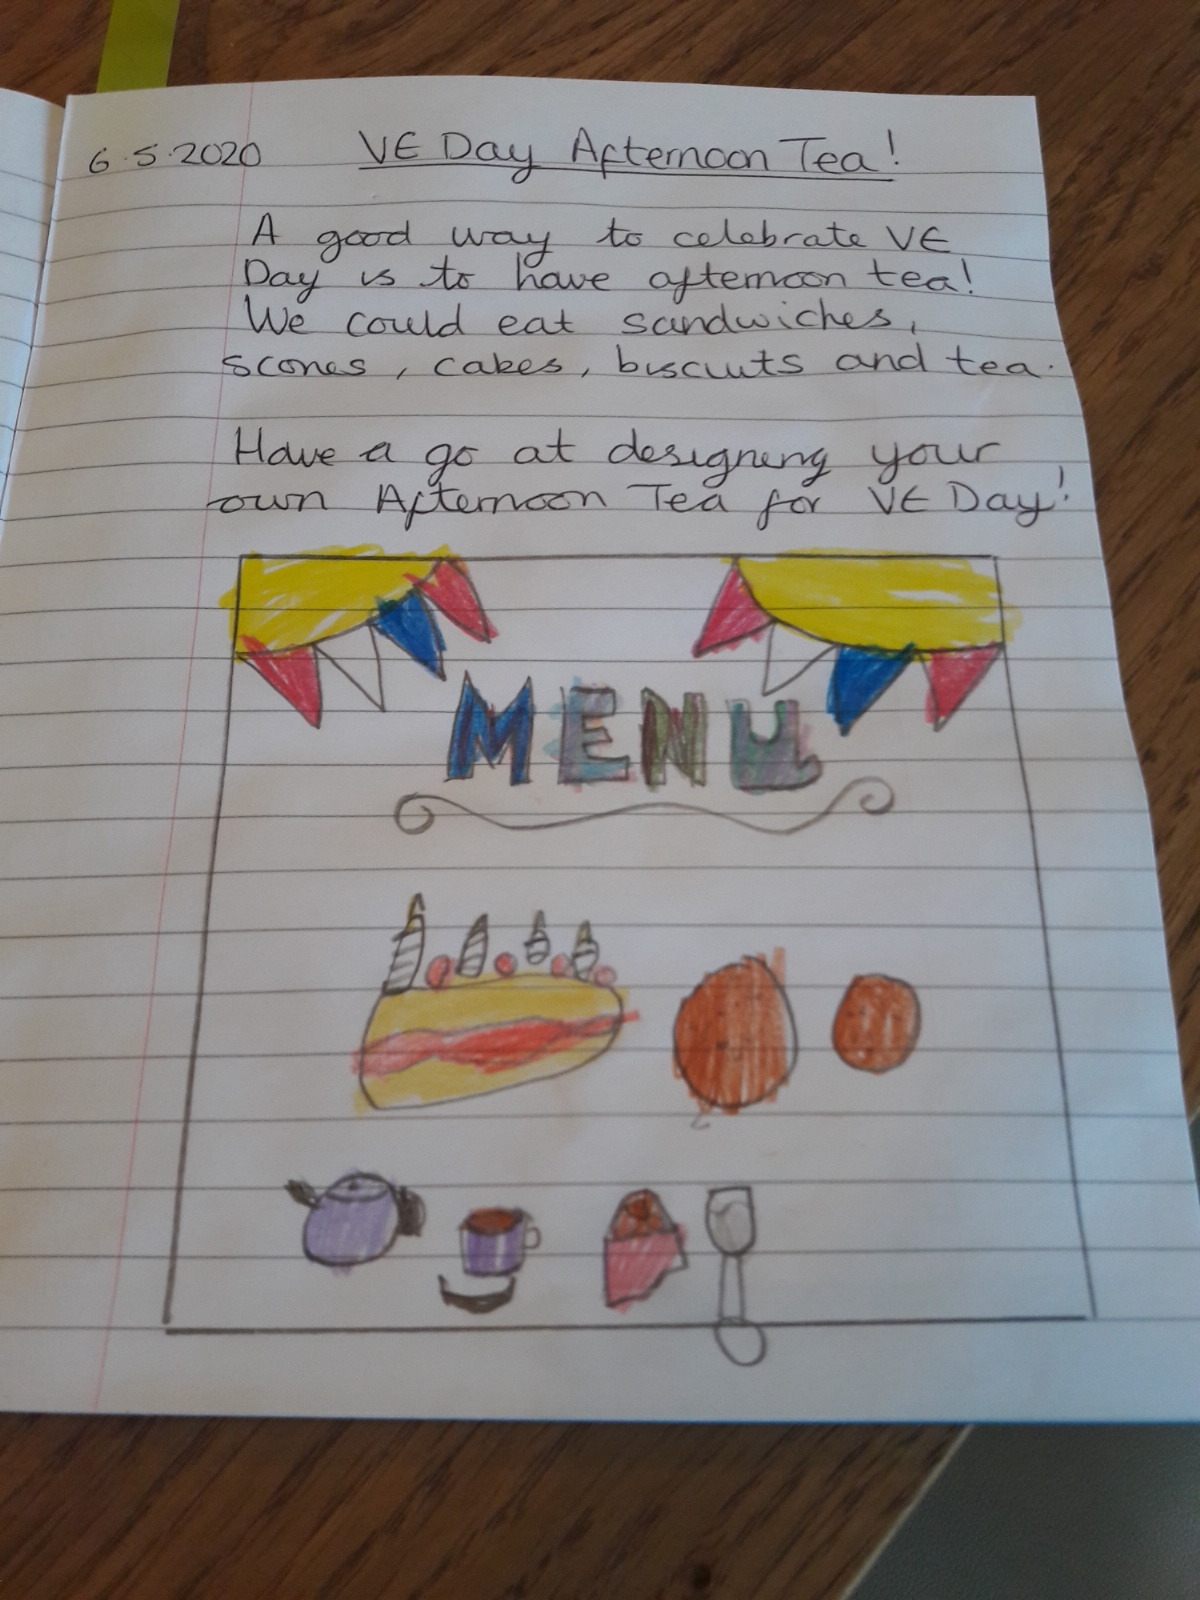 6.5.2020 VE Day Afternoon Tea!
A good way to celebrate VE
Day is to have afternoon tea!
We could eat sandwiches,
scones, cakes, biscuits and tea.
Have a go at designing your
own Afternoon Tea for VE Day!
MENU